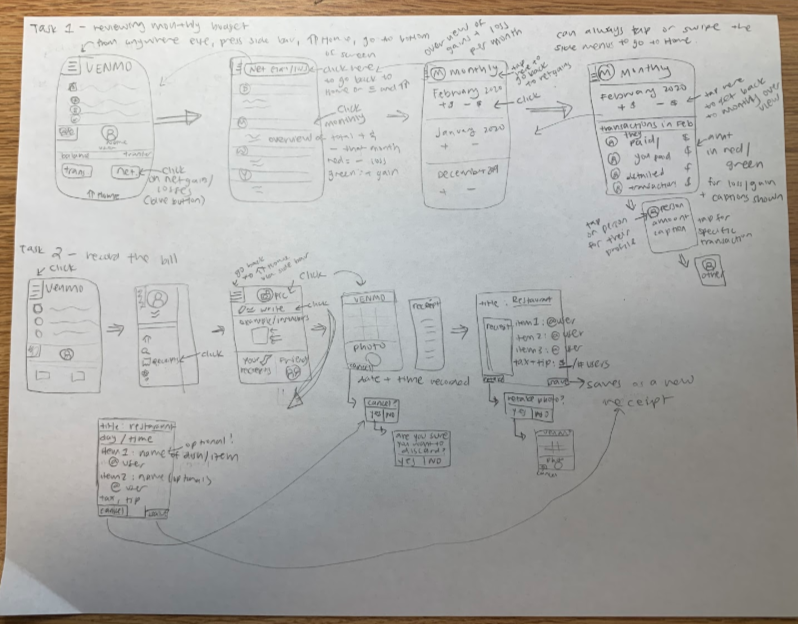 Task 1 - reviewing monthly budget
from anywhere else, press side bar, Home, go to bottom
of screen
VENMO
Name
transfer
net
click
on net gain/
losses
(blue button)
Home
click here
to go back to
home or
click
monthly
overview of total + $
- that month
red = - loss
green = gain
overview of
gain + loss
per month
M monthly
tap
here to
go back
to net gain
February 2020
+ $ - $
click
January 2020
+ -
December 2019
+ -
can always tap or swipe the
side menu to go to Home.
M Monthly
February 2020
+ $ - $
tap here
to go back
to monthly over
view
transactions in Feb
they
paid / $
you paid $
detailed $
transaction $
amt
in red/
green
for loss/gain
+ captions shown
tap
on person
for their
profile
person
amount
caption
tap for
specific
transaction
other
Task 2 - record the bill
click
VENMO
click
go back
to home
click
write
click
Your
receipts
Friends
VENMO
photo
cancel
receipt
date + time recorded
cancel?
YES NO
Are you sure
you want to
discard?
YES | NO
title : Restaurant
receipt
item 1 : @user
item 2 : @ user
item 3 : @ user
tax+tip : $ /# users
save
saves as a new
receipt
retake photo?
YES NO
photo
cancel
title restaurant
day / time
item 1 : name of dish/item
optional!
@ user
item 2 : name (optional)
@ user
tax, tip
cancel
save